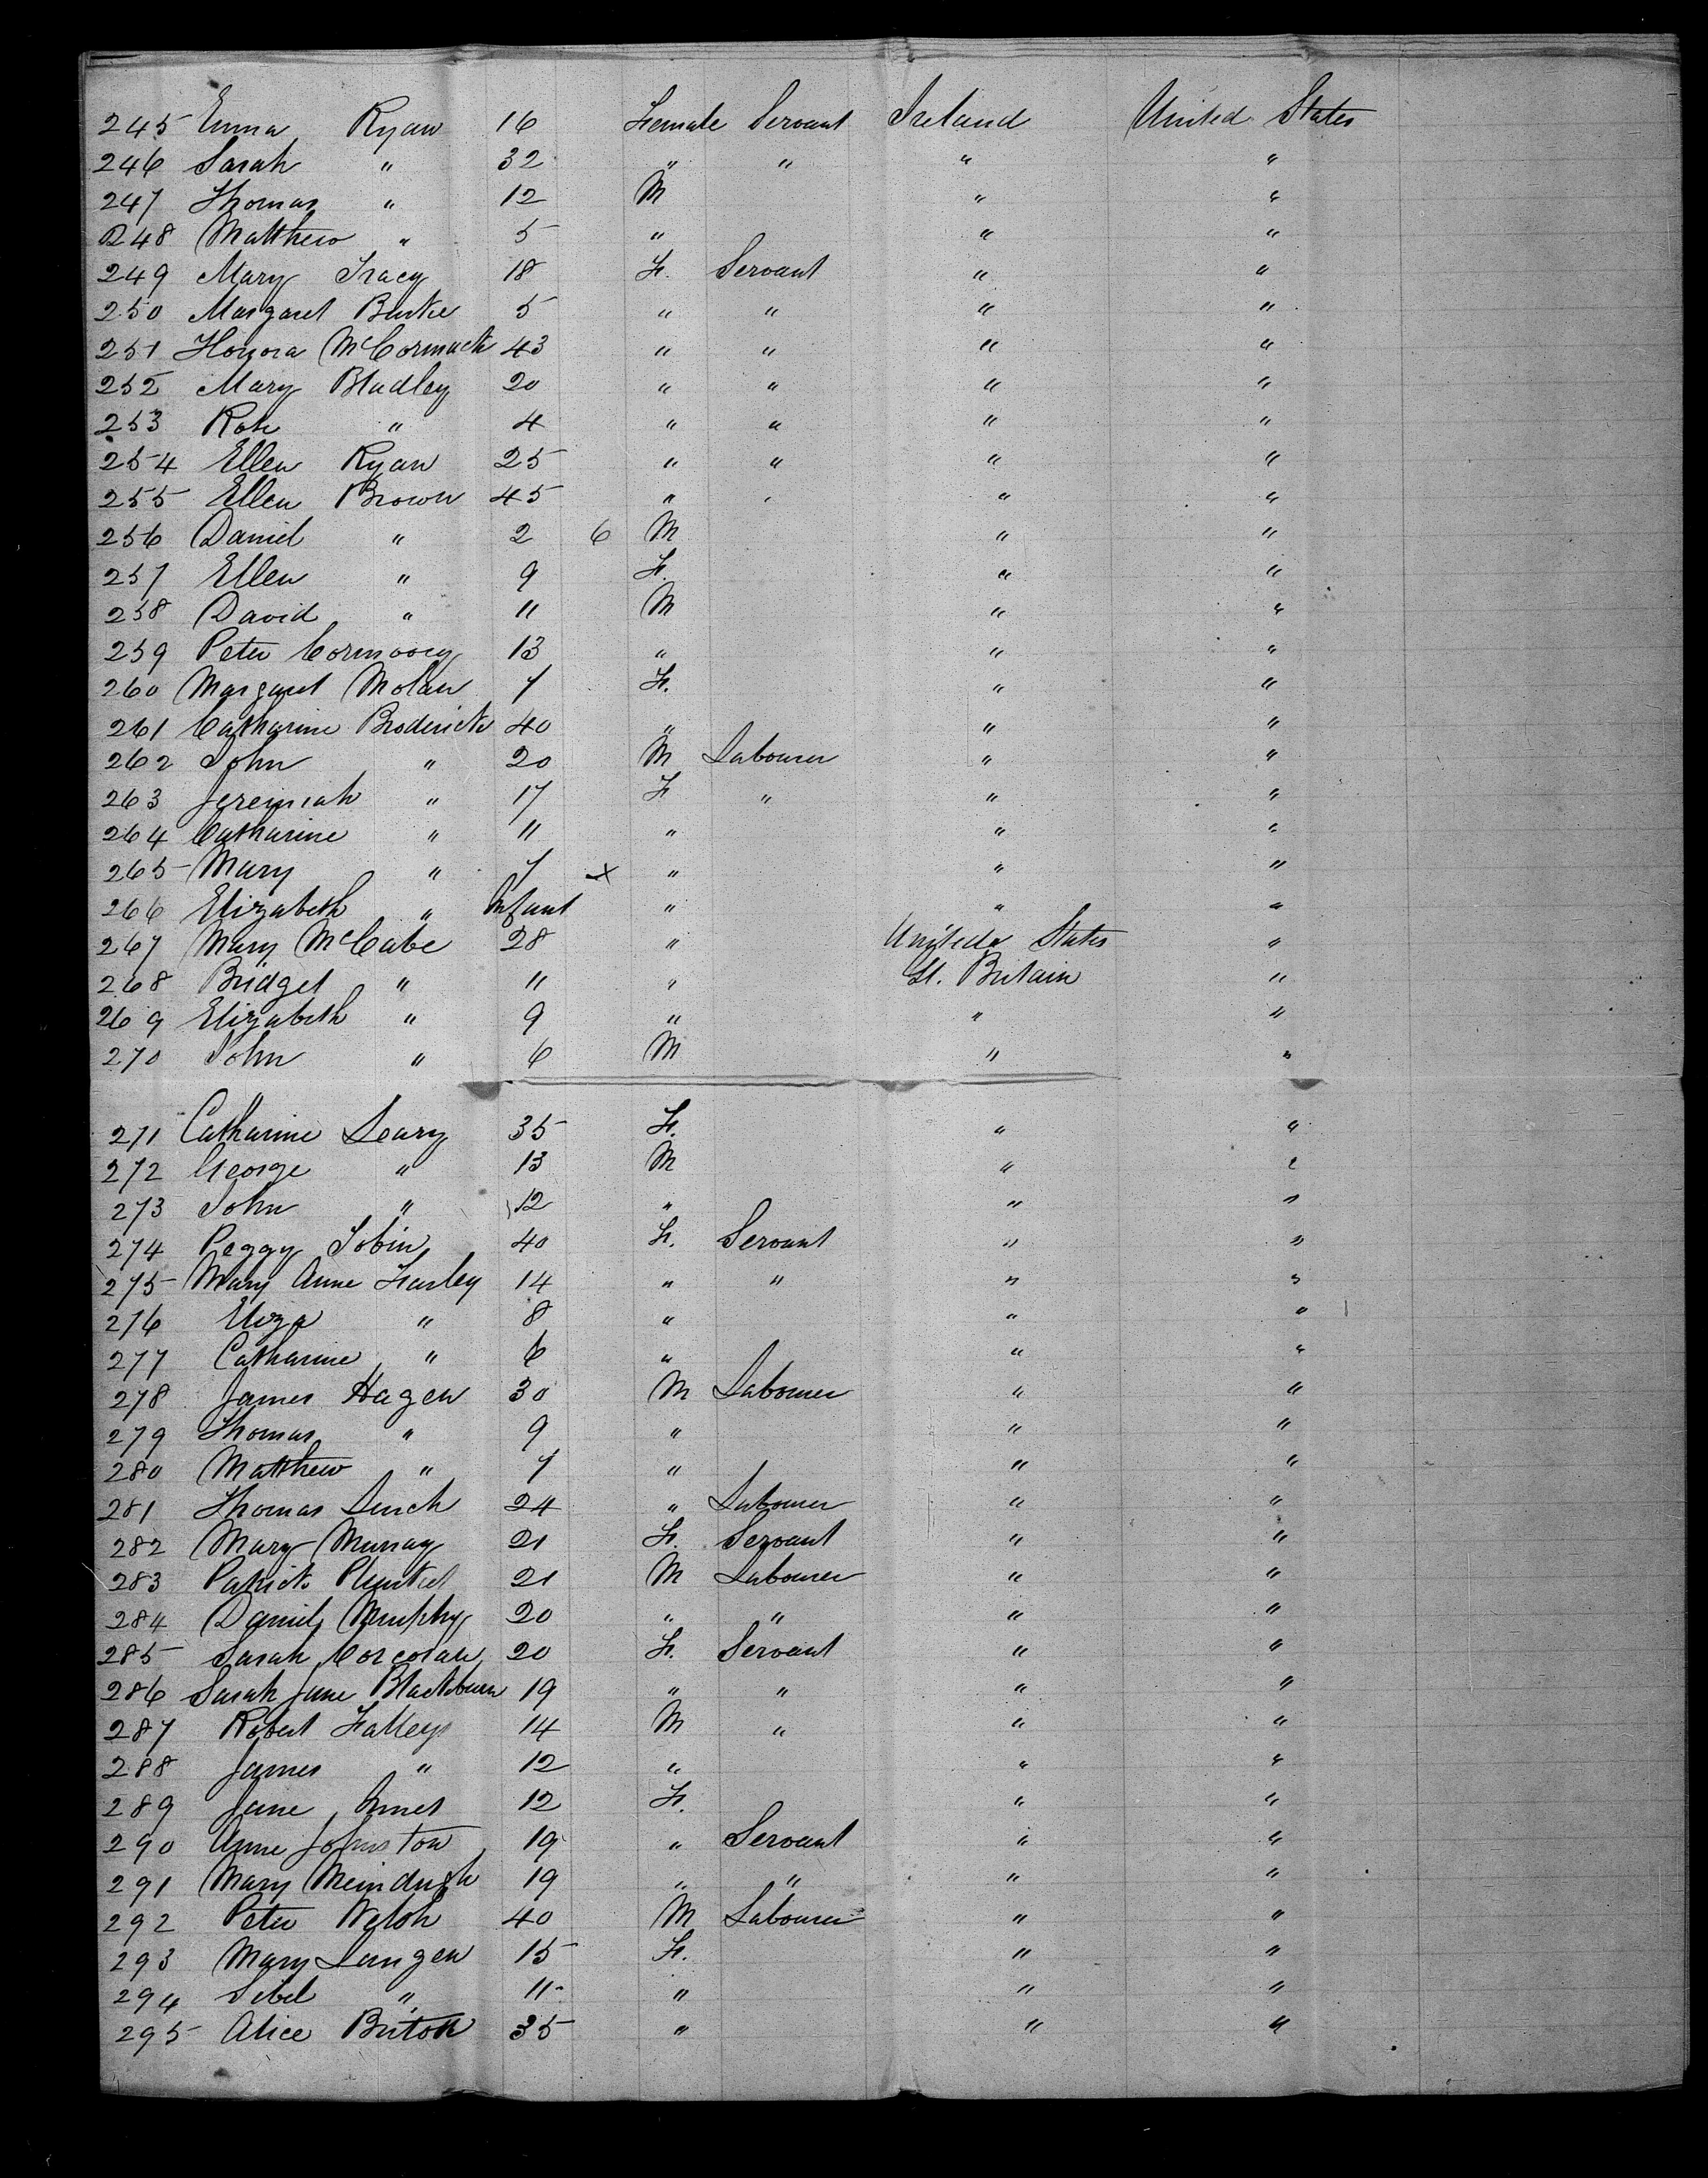 245 Emma Ryan 16 Female Servant Ireland United States
246 Sarah " 32 " " " "
247 Thomas " 12 M " "
248 Matthew " 5 " " "
249 Mary Tracy 18 F. Servant " "
250 Margaret Burke 5 " " " "
251 Honora McCormack 43 " " " "
252 Mary Bladley 20 " " " "
253 Kate " 4 " " " "
254 Ellen Ryan 25 " " " "
255 Ellen Brown 45 " " " "
256 Daniel " 2 6 M " "
257 Ellen " 9 F. " "
258 David " 11 M " "
259 Peter 13 " " "
260 Margaret Molan 7 F. " "
261 Catharine Broderick 40 " " "
262 John " 20 M Labourer " "
263 Jeremiah " 17 F " " "
264 Catharine " 11 " " "
265 Mary " 7 x " " "
266 Elizabeth " Infant " " "
267 Mary McCabe 28 " United States "
268 Bridget " 11 " Gt. Britain "
269 Elizabeth " 9 " " "
270 John " 6 M " "
271 Catharine Leary 35 F. " "
272 George " 13 M " "
273 John " 12 " " "
274 Peggy Tobin 40 F. Servant " "
275 Mary Anne Farley 14 " " " "
276 Eliza " 8 " " "
277 Catharine " 6 " " "
278 James Hagen 30 M Labourer " "
279 Thomas " 9 " " "
280 Matthew " 7 " " "
281 Thomas Linch 24 " Labourer " "
282 Mary Murray 21 F. Servant " "
283 Patrick Plunket 21 M Labourer " "
284 Daniel Murphy 20 " " " "
285 Sarah Corcoran 20 F. Servant " "
286 Sarah Jane Blackburn 19 " " " "
287 Robert Falleys 14 M " " "
288 James " 12 " " "
289 Jane 12 F. " "
290 Anne Johnston 19 " Servant " "
291 Mary 19 " " " "
292 Peter Welsh 40 M Labourer " "
293 Mary Langen 15 F. " "
294 Sibel " 11 " " "
295 Alice Briton 35 " " "